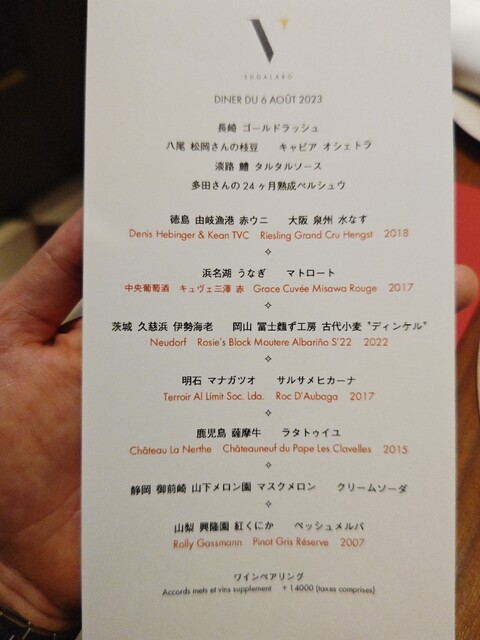 V
SUGALABO
DINER DU 6 AOÛT 2023
長崎 ゴールドラッシュ
八尾 松岡さんの枝豆 キャビア オシェトラ
淡路 鱧 タルタルソース
多田さんの24ヶ月熟成ペルシュウ
徳島 由岐漁港 赤ウニ 大阪 泉州 水なす
Denis Hebinger & Kean TVC Riesling Grand Cru Hengst 2018
浜名湖 うなぎ マトロート
中央葡萄酒 キュヴェ三澤 赤 Grace Cuvée Misawa Rouge 2017
茨城 久慈浜 伊勢海老 岡山 冨士麵ず工房 古代小麦 "ディンケル"
Neudorf Rosie's Block Moutere Albariño S'22 2022
明石 マナガツオ サルサメヒカーナ
Terroir Al Límit Soc. Lda. Roc D'Aubaga 2017
鹿児島 薩摩牛 ラタトゥイユ
Château La Nerthe Châteauneuf du Pape Les Clavelles 2015
静岡 御前崎 山下メロン園 マスクメロン クリームソーダ
山梨 興隆園 紅くにか ペッシュメルバ
Rolly Gassmann Pinot Gris Réserve 2007
ワインペアリング
Accords mets et vins supplement +14000 (taxes comprises)